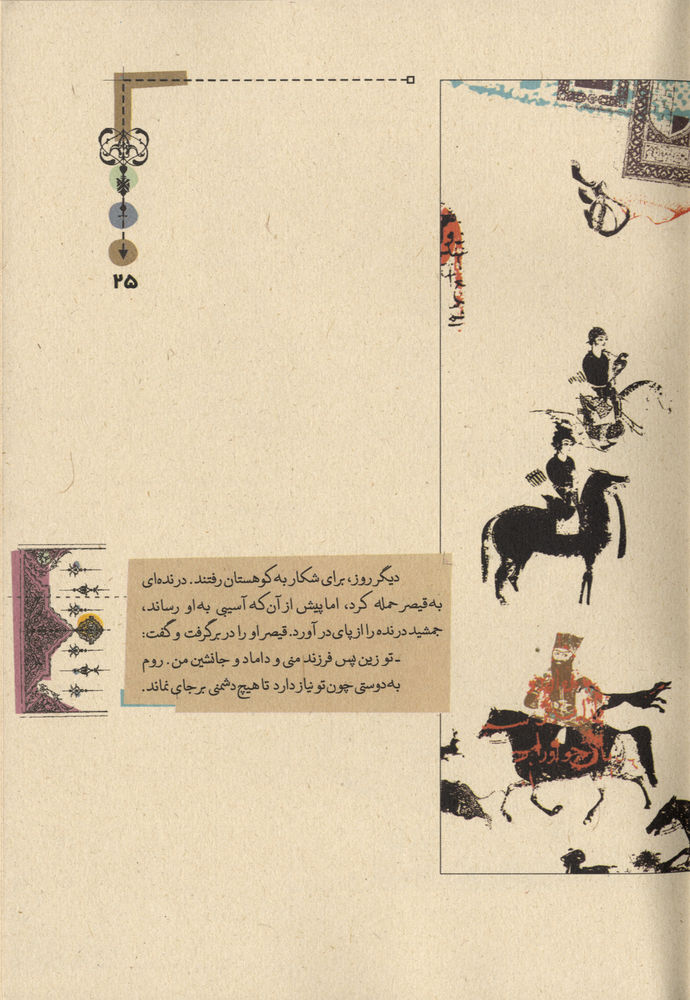 ۲۵
دیگر روز، برای شکار به کوهستان رفتند. درنده‌ای
به قیصر حمله کرد، اما پیش از آن‌که آسیبی به او رساند،
جمشید درنده را از پای در آورد. قیصر او را در بر گرفت و گفت:
ـ تو زین پس فرزند منی و داماد و جانشین من. روم
به دوستی چون تو نیاز دارد تا هیچ دشمنی بر جای نماند.